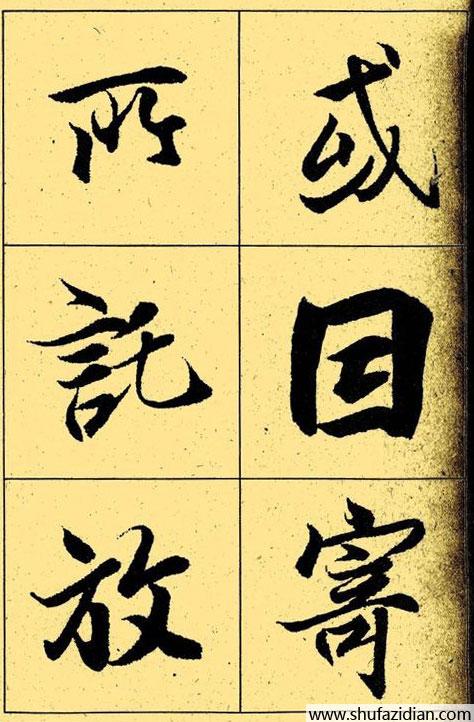 或因寄
所託放
www.shufazidian.com